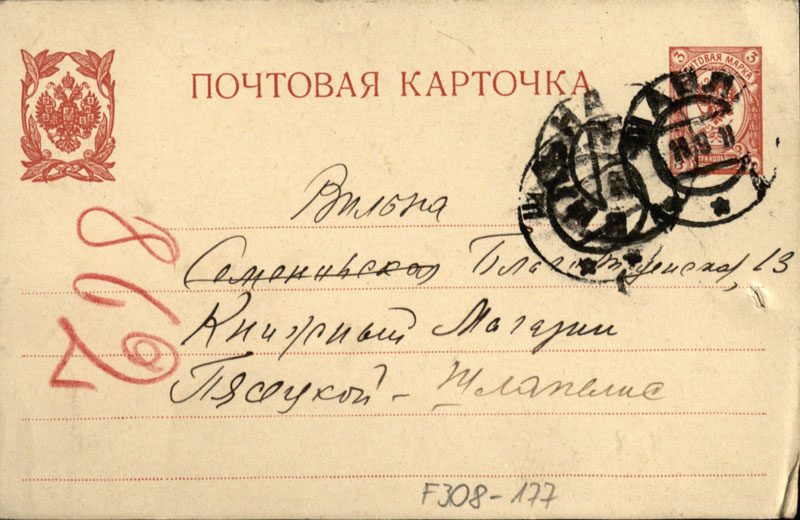 ПОЧТОВАЯ КАРТОЧКА
3 ПОЧТОВАЯ МАРКА 3
ШАВЛ
11 9 11
Вильна
Семеновская Благовещенская, 13
Книжный Магазин
Пясецкой - Шлапелис
862
F308-177